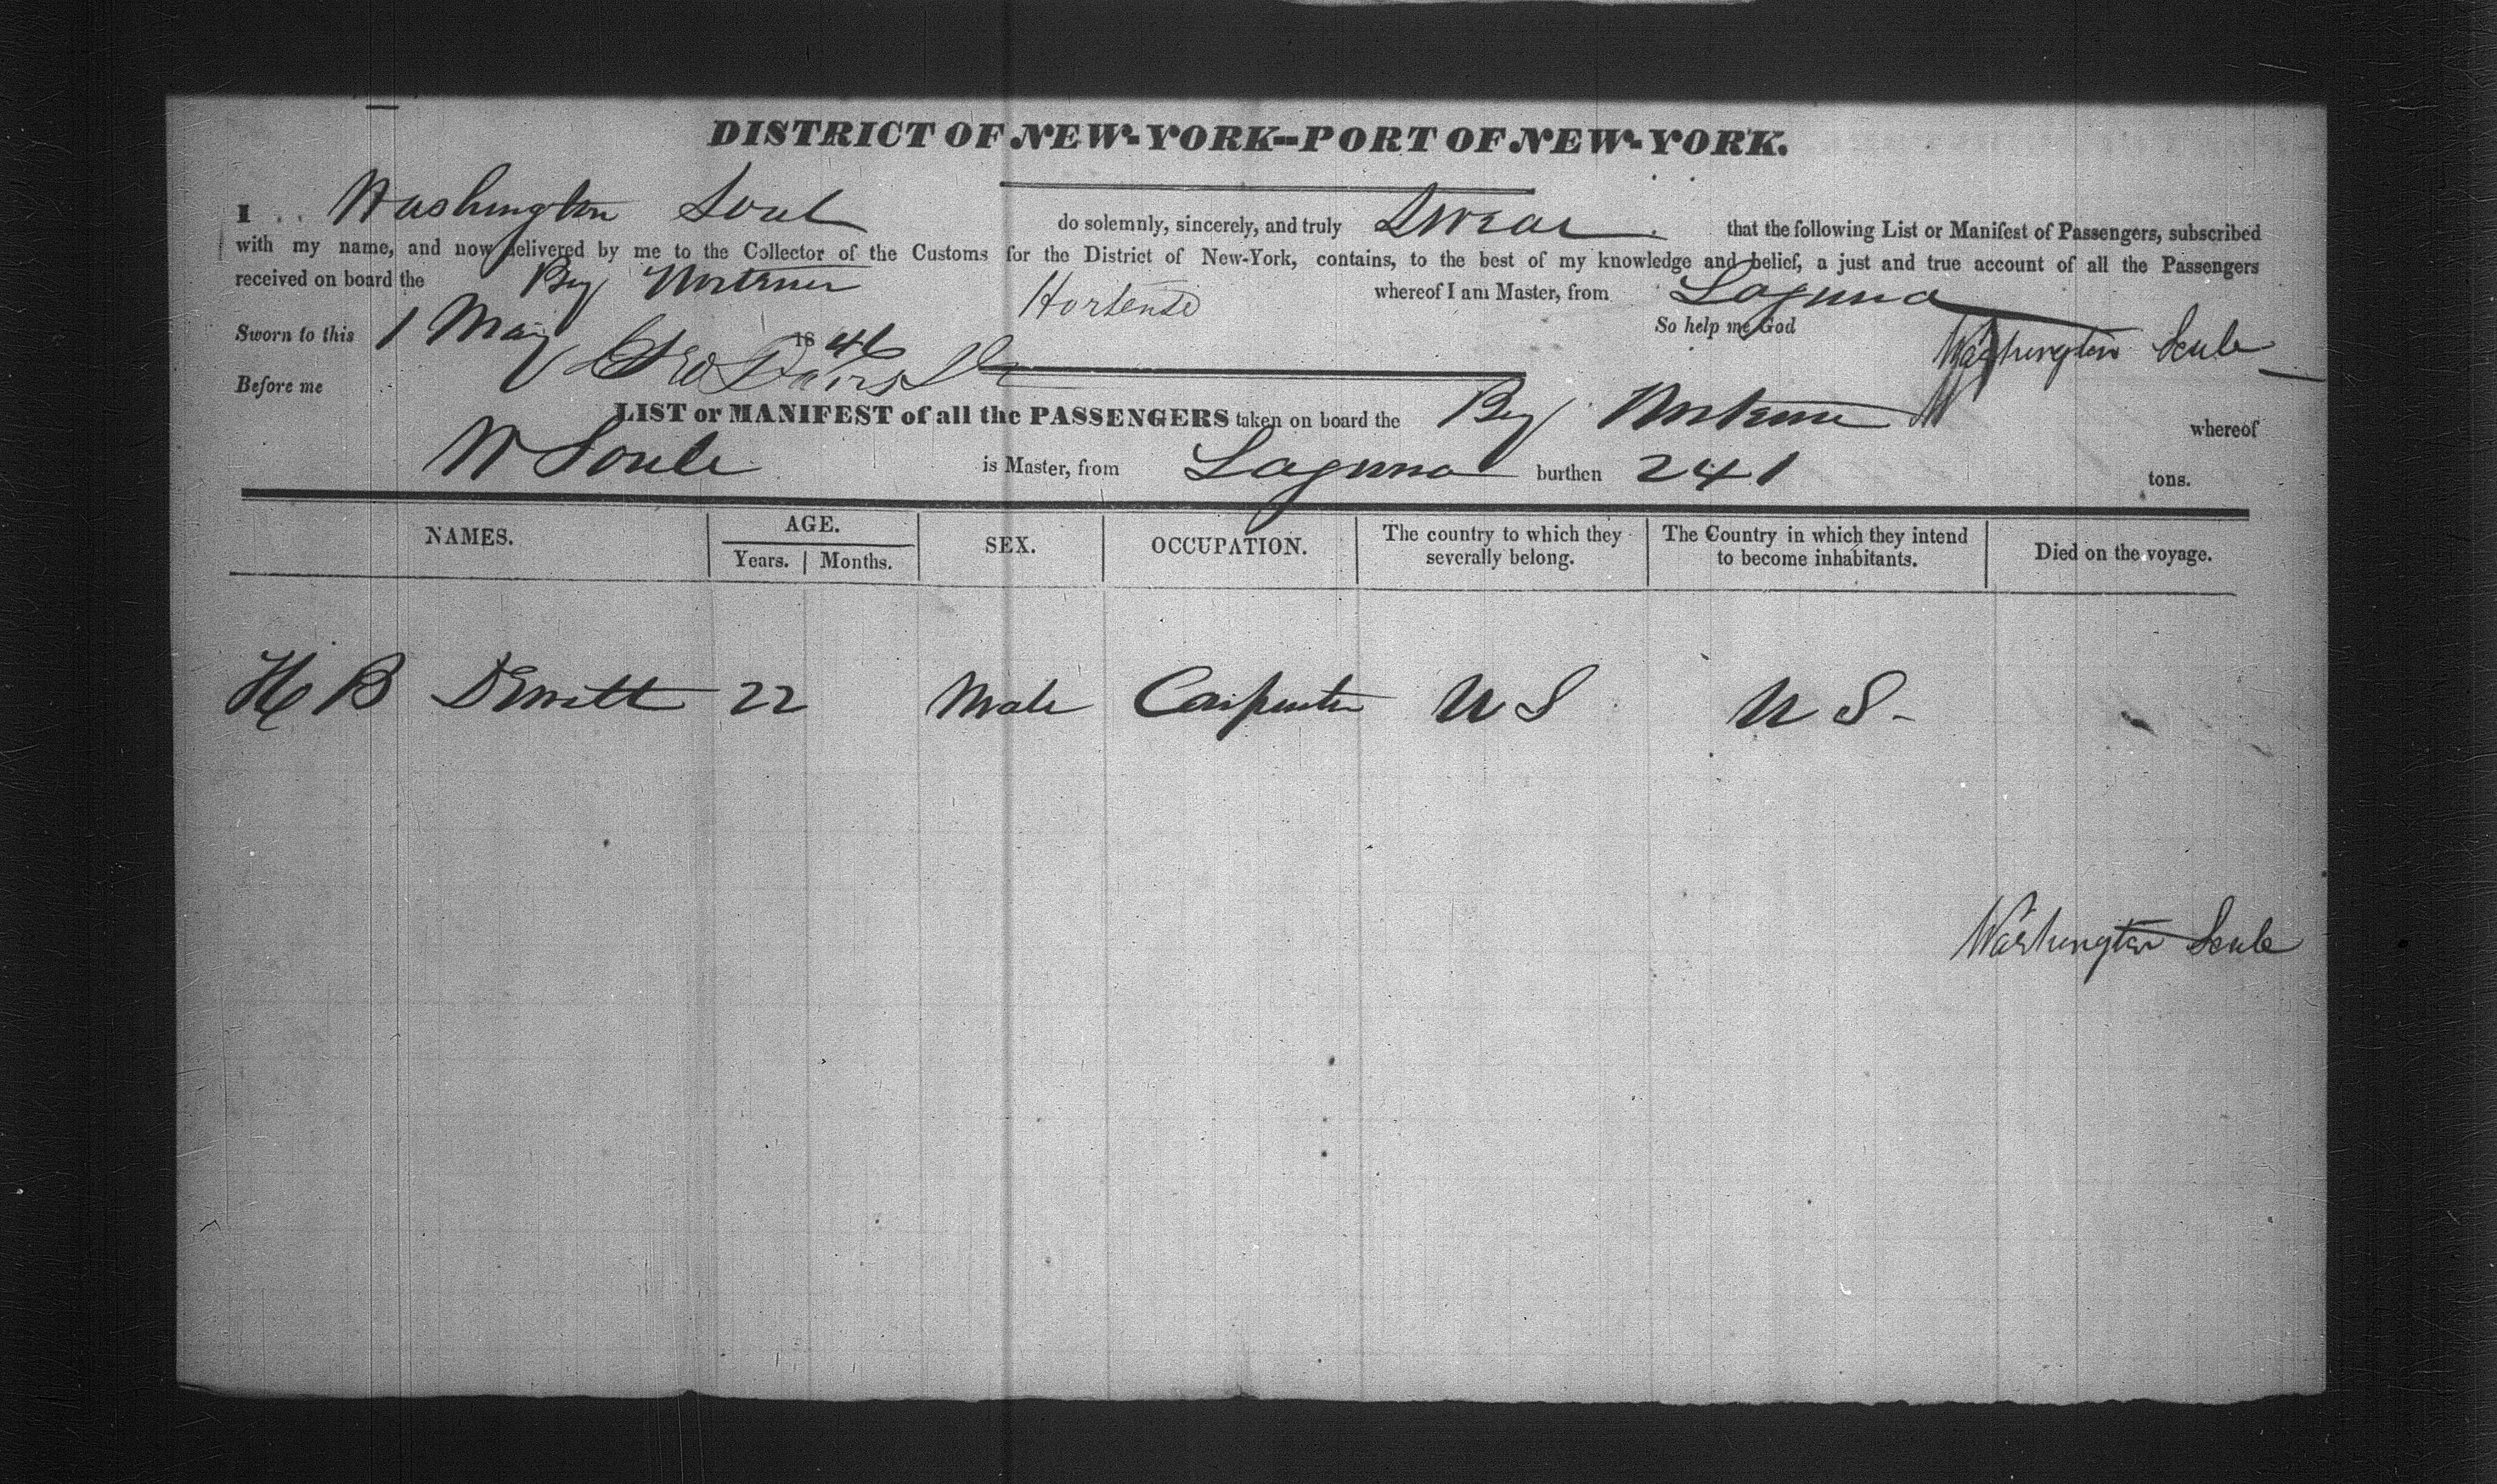 DISTRICT OF NEW-YORK--PORT OF NEW-YORK.
I Washington Soul do solemnly, sincerely, and truly Swear that the following List or Manifest of Passengers, subscribed
with my name, and now delivered by me to the Collector of the Customs for the District of New-York, contains, to the best of my knowledge and belief, a just and true account of all the Passengers
received on board the whereof I am Master, from Laguna
Hortense
Sworn to this 1 May 1846 So help me God Washington Soule
Before me
LIST or MANIFEST of all the PASSENGERS taken on board the whereof
W Soule is Master, from Laguna burthen 241 tons.
NAMES. AGE. SEX. OCCUPATION. The country to which they severally belong. The Country in which they intend to become inhabitants. Died on the voyage.
Years. Months.
H B DEwitt 22 Male Carpenter U S U S-
Washington Soule